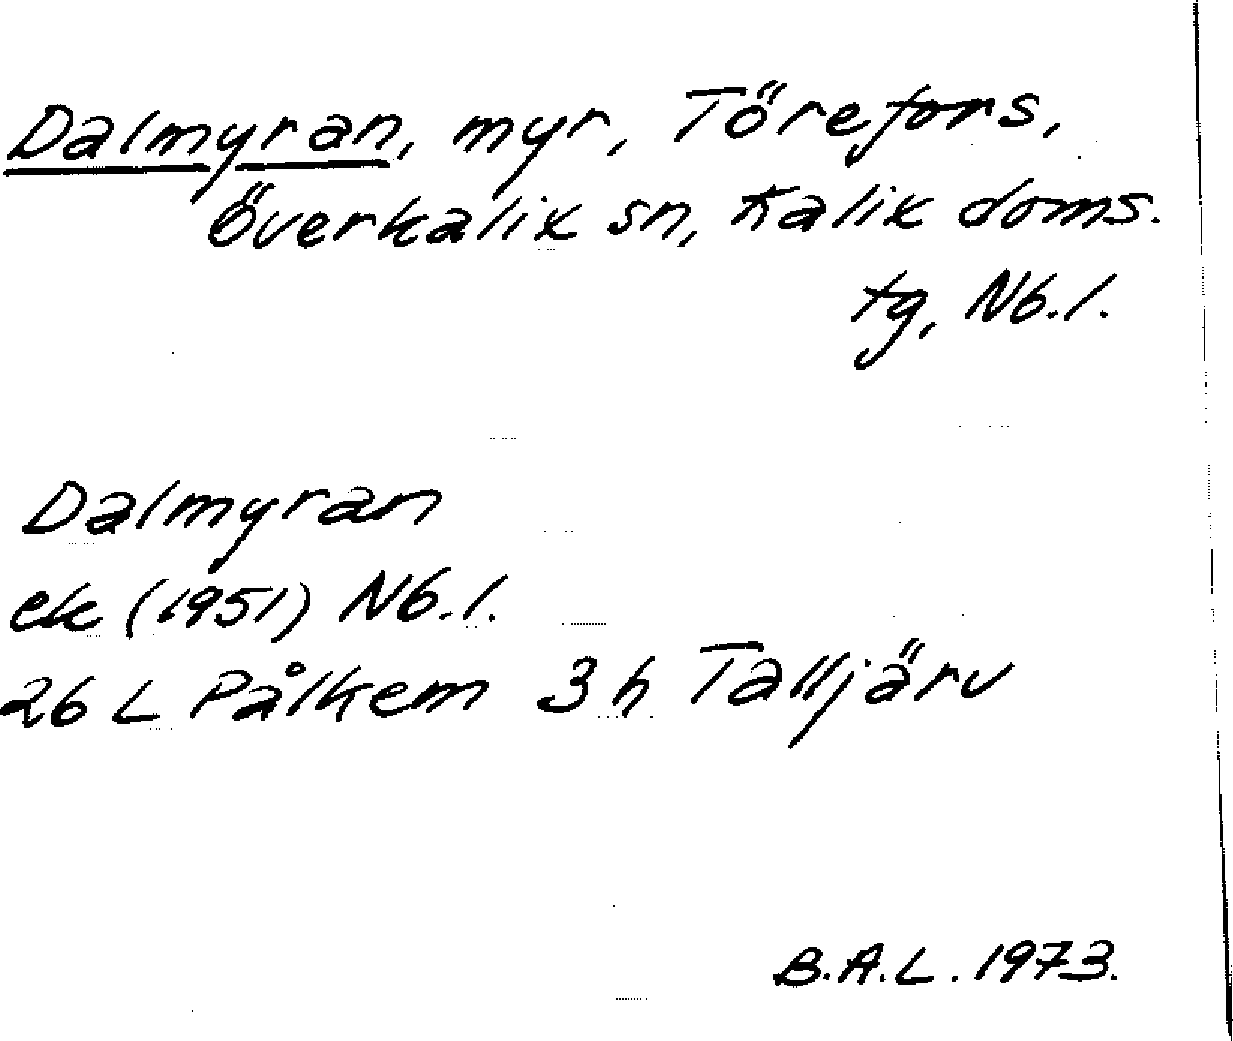 Dalmyran, myr, Törefors,
Överkalix sn, Kalix doms.
tg, Nb.l.
Dalmyran
ek (1951) Nb.l.
26 L Pålkem 3 h Talljärv
B.A.L. 1973.